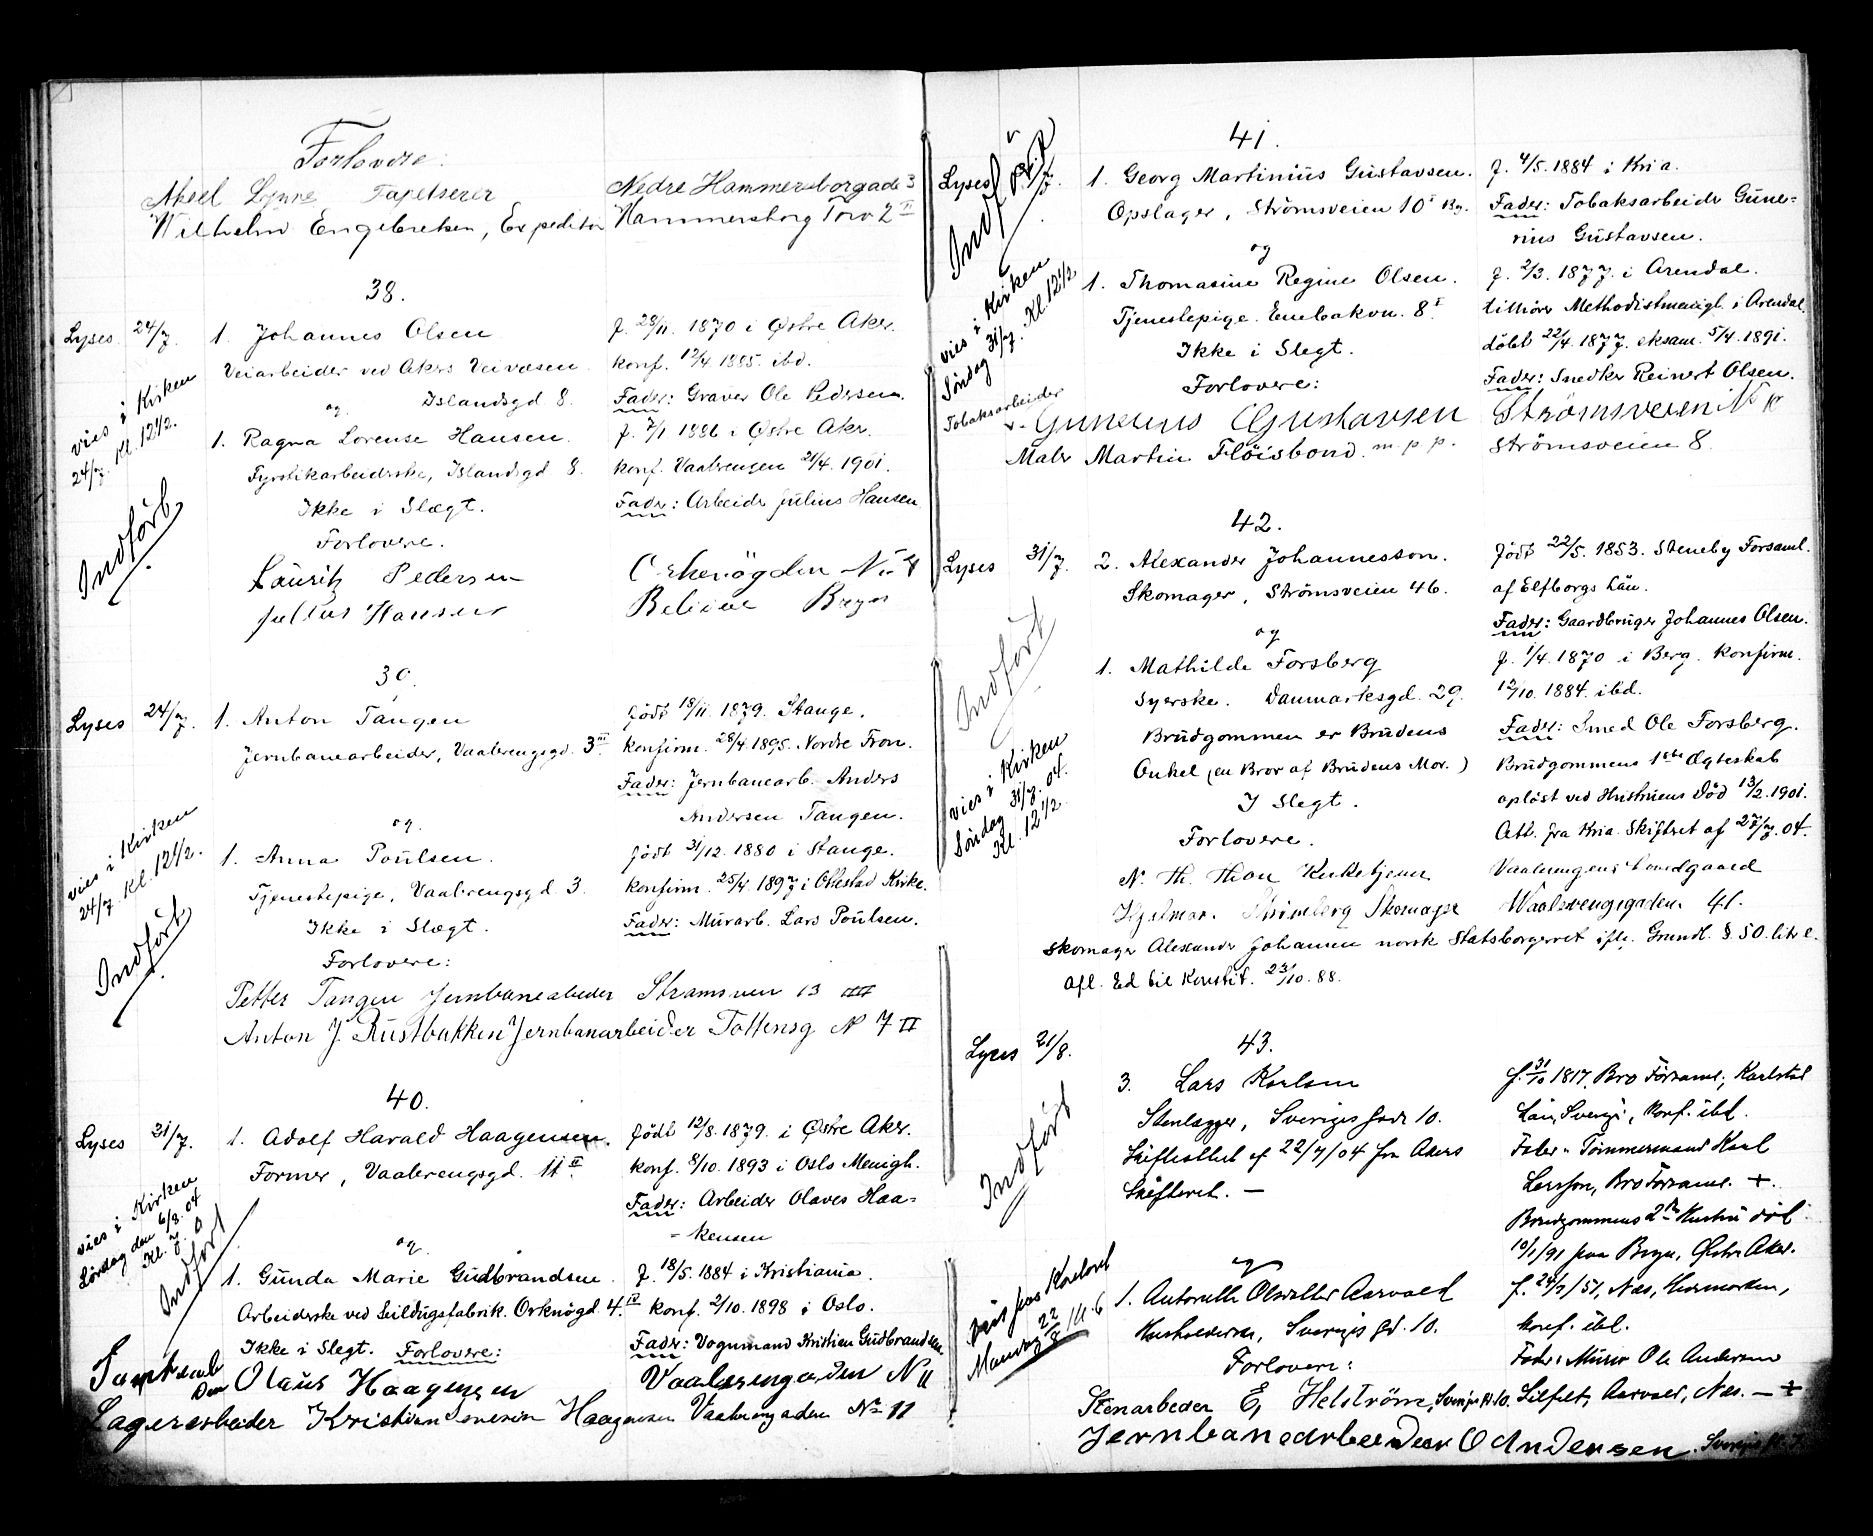 Forlovere:
Aksel Lynne Tapetserer Nedre Hammersborgade 3
Wilhelm Engebretsen, Expeditør Hammersborg Torv 2 II
38.
Lyses 24/7. 1. Johannes Olsen f. 28/11. 1870 i Østre Aker.
Veiarbeider ved Akers Veivæsen. konf. 12/4 1885. ibd.
og Islandsgd 8. Fader: Graver Ole Pedersen.
vies i Kirken
24/7. Kl. 12 1/2.
1. Ragna Lorense Hansen. f. 7/1 1886 i Østre Aker.
Fyrstikarbeiderske, Islandsgd 8. konf. Vaalerengen 21/4. 1901.
Ikke i Slægt. Fader: Arbeider Julius Hansen
Indført
Forlovere.
Lauritz Pedersen
Julius Hansen
39.
Lyses 24/7. 1. Anton Tangen født 18/11. 1879. Stange.
Jernbanearbeider, Vaalerengsgd. 3 III konfirm. 28/4. 1895. Nordre Fron.
Fader: Jernbanearb. Anders
Andersen Tangen.
og.
vies i Kirken
24/7 Kl. 12 1/2.
1. Anna Poulsen. født 31/12. 1880 i Stange.
Tjenestepige, Vaalerengsgd 3. konfirm. 25/4. 1897 i Ottestad Kirke.
Ikke i Slægt. Fader: Murarb. Lars Poulsen.
Indført
Forlovere:
Petter Tangen Jernbanearbeder Strømsveien 13 III
Anton J. Rustbakken Jernbanarbeider Tottensg N 7 II
40.
Lyses 31/7. 1. Adolf Harald Haagensen. født 12/8. 1879. i Østre Aker.
Former, Vaalerengsgd. 11 II konf. 8/10. 1893 i Oslo Menigh.
Fader: Arbeider Olaves Haa-
kensen
vies i Kirken
Lørdag den 6/8. 04
Kl. 7.
Indført
og.
1. Gunda Marie Gudbrandsen f. 18/5. 1884 i Kristiania.
Arbeiderske ved Seildugsfabrik. Orknøgd. 4. IV konf. 2/10. 1898 i Oslo.
Ikke i Slegt. Forlovere: Fader: Vognmand Kristian Gudbrandsen
Olaus Haagensen Vaalerengaden N 11
Lagerarbeider Kristian Haagensen Vaalerengaden No 11
41.
Lyses 1. Georg Martinius Gustavsen. f. 4/5. 1884 i Kria.
Opslager, Strömsveien 10 I By. Fader: Tobaksarbeider Gune-
rius Gustavsen.
Indført
og
1. Thomasine Regine Olsen. f. 2/3. 1877. i Arendal.
Tjenestepige. Enebakvn. 8 I tilhører Methodistmenigh. i Arendal
Ikke i Slegt. døbt 22/4. 1877. eksam. 5/4. 1891.
Forlovere: Fader: Snedker Reinert Olsen.
vies i Kirken
Søndag 31/7. Kl. 12 1/2
Tobaksarbeider
Gunerius Gustavsen Strömsveien N 10
Maler Martin Flöisbond. m.p.p. Strömsveien 8.
42.
Lyses 31/7. 2. Alexander Johannesson. født 22/5. 1853. Steneby Forsaml.
Skomager, Strömsveien 46. af Elfborgs Län.
og Fader: Gaardbruger Johannes Olsen.
Indført
1. Mathilde Forsberg f. 1/4. 1870 i Berg. Konfirm.
Syerske. Danmarksgd. 29. 12/10. 1884. ibd.
Brudgommen er Brudens Fader: Smed Ole Forsberg.
Onkel (en Bror af Brudens Mor.) Brudgommens 1ste Ægteskab
I Slegt. opløst ved Hustruens Død 13/2. 1901.
Forlovere. Att. fra Kria. Skifteret af 27/7. 04.
vies i Kirken
Søndag 31/7. 04.
Kl. 12 1/2.
N. Th. Thon Vaalerengens
Hjalmar Skomager Waalerengsgaden 41.
Skomager Alexander Johansen norsk Statsborgerret iflg. Grundl. § 50. litr e.
Afl. Ed til Konstit. 23/10. 88.
43.
Lyses 21/8. 3. Lars Karlsen f. 31/10 1817. Bro Församl., Karlstad
Stenlægger, Sveriges Gade 10. Län, Sverige, konf. ibd.
Skifteattest af 22/7/04 fra Akers Fader: Tømmermand Karl
Skifteret. — Larsson, Bro Församl. +.
Indført
Brudgommens 2den Hustru død
19/1/91 paa Bryn, Østre Aker.
og
1. Aarvold f. 24/2/51, Næs, Hedmarken,
Husholderske, Sveriges gd. 10. konf. ibd.
Forlovere: Fader: Murer Ole Andersen
Mandag 22/8 Kl. 6
Stenarbeder E, Helström, Sveriges gt 10. Aarvold, Næs. — +
Jernbanearbeider O Andersen. Sverigs gt 7